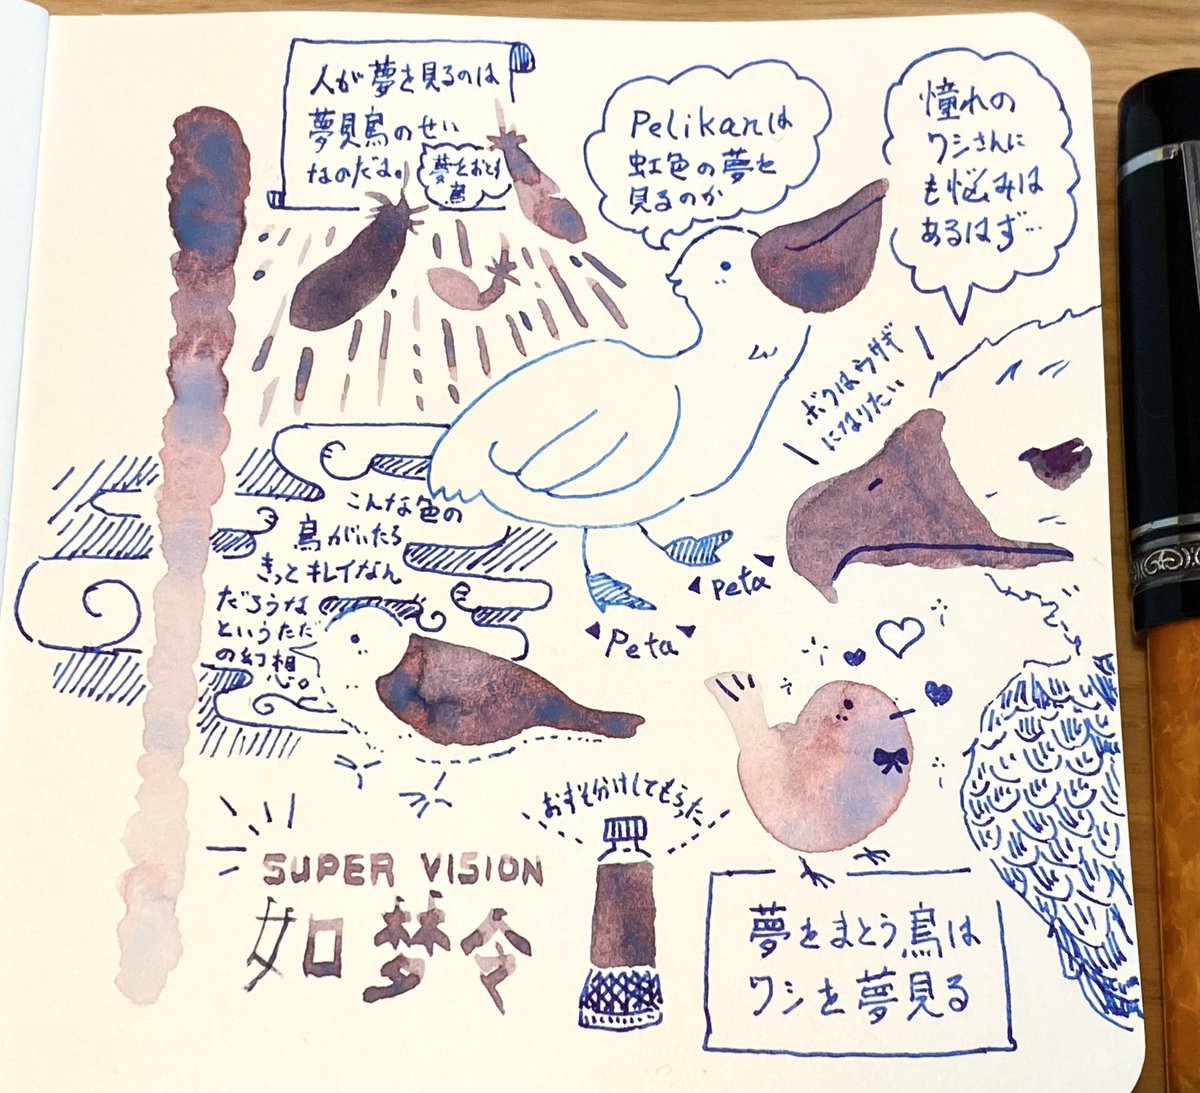 人が夢を見るのは
夢見鳥のせい
なのだよ。
夢をおとす
鳥
Pelikanは
虹色の夢を
見るのか
憧れの
ワシさんに
も悩みは
あるはず…
ボクはウサギ
になりたい
こんな色の
鳥がいたら
きっとキレイなん
だろうな
というただ
の幻想。
Peta
Peta
おすそ分けしてもらった
SUPER VISION
如夢令
夢をまとう鳥は
ワシを夢見る